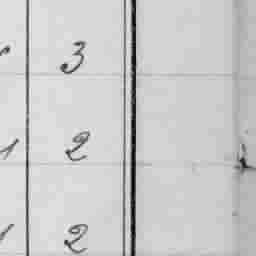 3
1 2
1 2